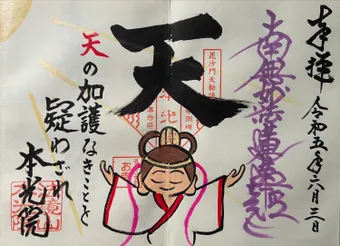 奉拝
令和五年六月三日
南無妙法蓮華経
天
毘沙門天
天の加護なきことを
疑わざれ
本光院